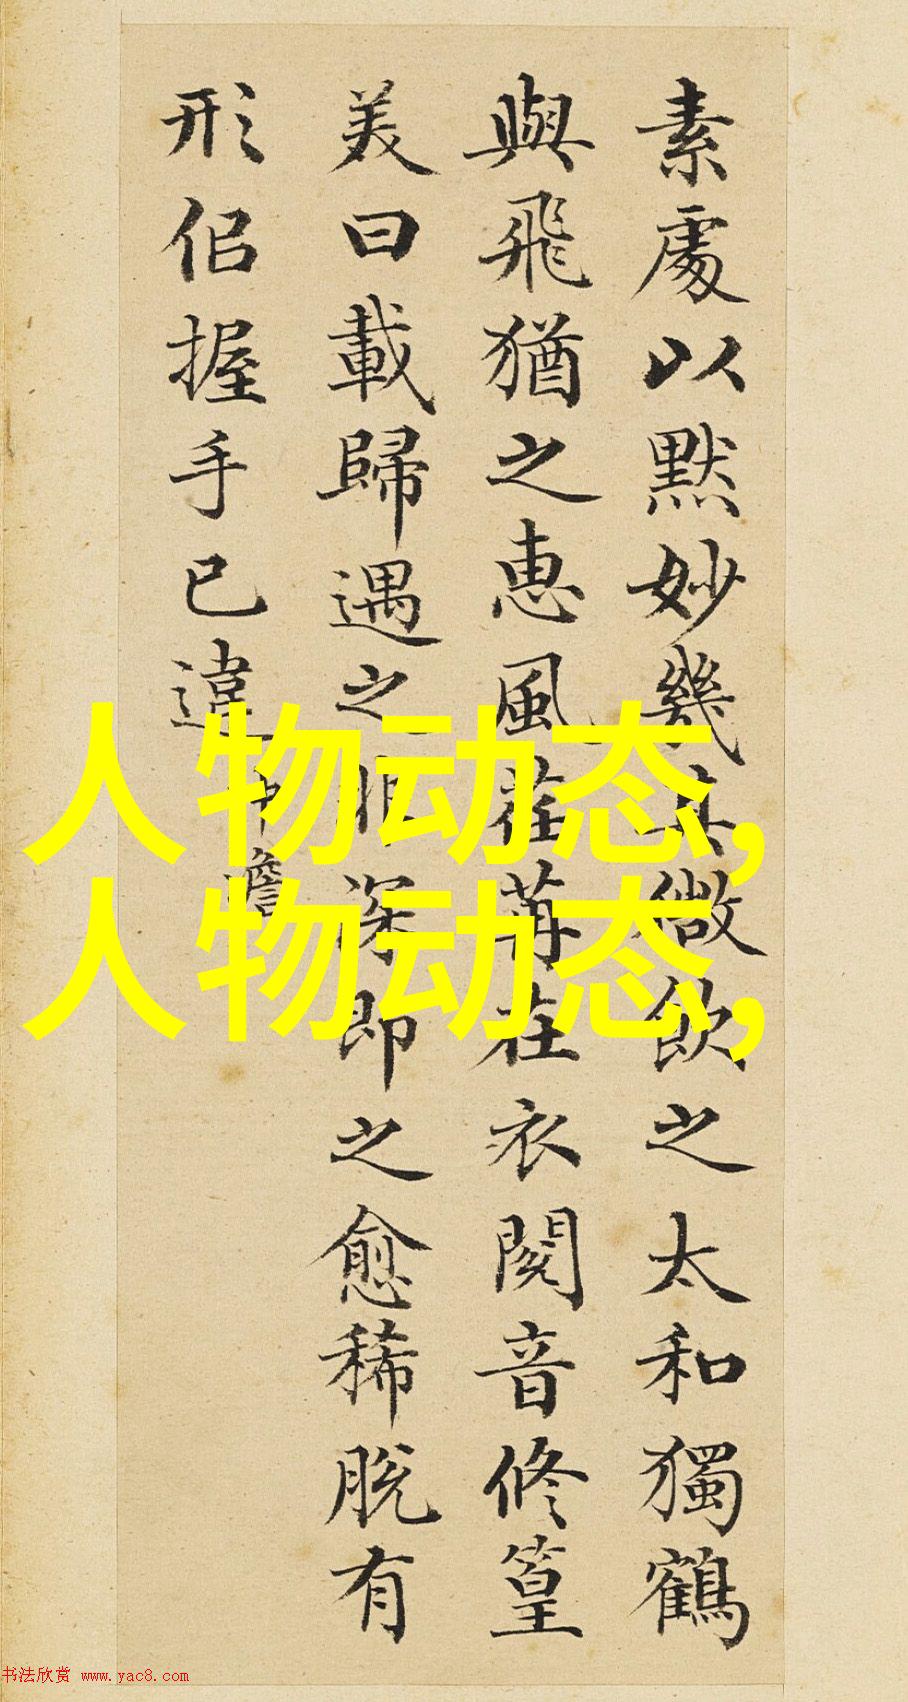 素處以默妙幾其微飲之太和獨鶴
與飛猶之惠風荏苒在衣閱音修篁
美曰載歸遇之非深即之愈稀脫有
形佀握手已違
沖澹
人物动态,
人物动态,
书法欣赏 www.yac8.com